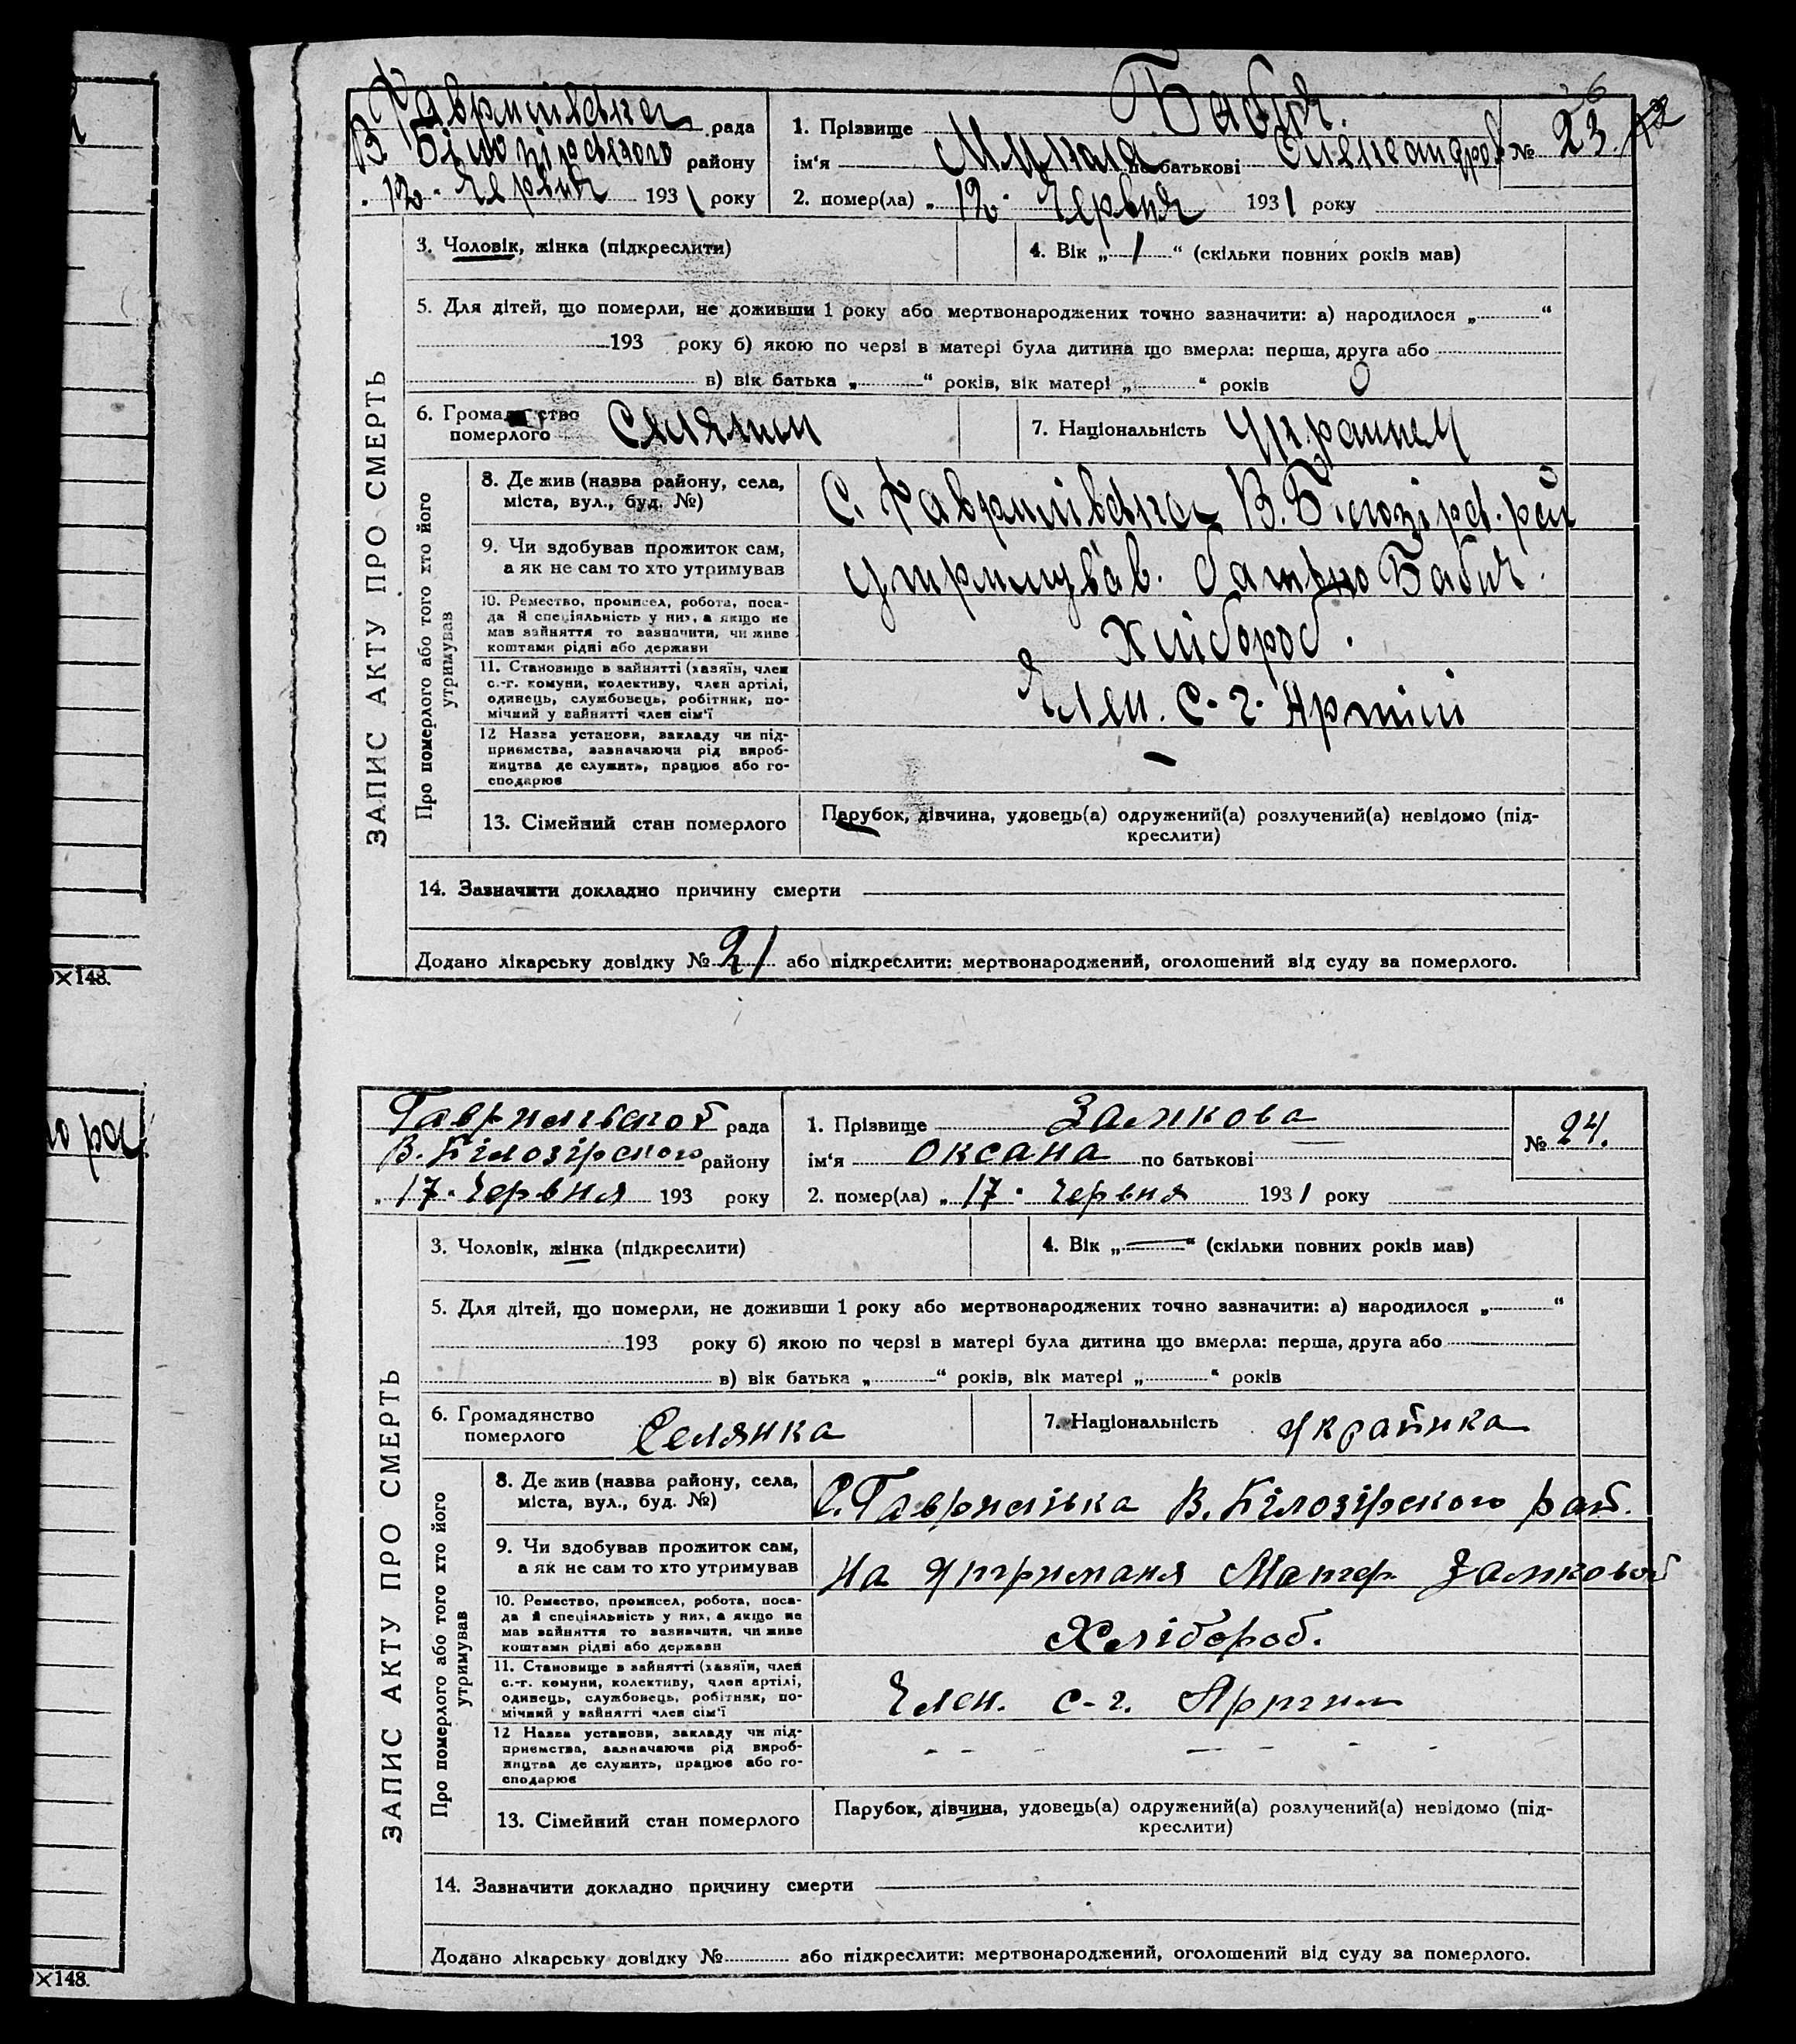 Гаврилівська рада
В Білозірського району
„ 12 “ Червня 1931 року
1. Прізвище Бабич.
ім‘я Микола по батькові Олександров № 23
2. помер(ла) „ 12 “ Червня 1931 року
26
ЗАПИС АКТУ ПРО СМЕРТЬ
3. Чоловік, жінка (підкреслити)
4. Вік „ 1 “ (скільки повних років мав)
5. Для дітей, що померли, не доживши 1 року або мертвонароджених точно зазначити: а) народилося „ “
193 року б) якою по черзі в матері була дитина що вмерла: перша, друга або
в) вік батька „ “ років, вік матері „ “ років
6. Громадянство померлого Селянин
7. Національність Українец
Про померлого або того хто його утримував
8. Де жив (назва району, села,
міста, вул., буд. №)
С. Гаврилівка В. Білозірс. рай
9. Чи здобував прожиток сам,
а як не сам то хто утримував
утримував. батько Бабич.
10. Ремество, промисел, робота, поса-
да й спеціяльність у них, а якщо не
мав зайняття то зазначити, чи живе
коштами рідні або держави
Хлібороб.
11. Становище в зайнятті (хазяїн, член
с.-г. комуни, колективу, член артілі,
одинець, службовець, робітник, по-
мічний у зайнятті член сім‘ї
Член. с. г. Артілі
12 Назва установи, закладу чи під-
приємства, зазначаючи рід вироб-
ництва де служить, працює або го-
сподарює
–
13. Сімейний стан померлого
Парубок, дівчина, удовець(а) одружений(а) розлучений(а) невідомо (під-
креслити)
14. Зазначити докладно причину смерти
Додано лікарську довідку № 21 або підкреслити: мертвонароджений, оголошений від суду за померлого.
×148.
Гаврилівской рада
В. Білозірского району
„ 17 “ Червня 193 року
1. Прізвище Замкова
ім‘я Оксана по батькові
№ 24.
2. помер(ла) „ 17 “ Червня 1931 року
ЗАПИС АКТУ ПРО СМЕРТЬ
3. Чоловік, жінка (підкреслити)
4. Вік „ — “ (скільки повних років мав)
5. Для дітей, що померли, не доживши 1 року або мертвонароджених точно зазначити: а) народилося „ “
193 року б) якою по черзі в матері була дитина що вмерла: перша, друга або
в) вік батька „ “ років, вік матері „ “ років
6. Громадянство померлого Селянка
7. Національність Українка
Про померлого або того хто його утримував
8. Де жив (назва району, села,
міста, вул., буд. №)
С. Гаврилівка В. Білозірского рай.
9. Чи здобував прожиток сам,
а як не сам то хто утримував
На утриманя Матер Замковой
10. Ремество, промисел, робота, поса-
да й спеціяльність у них, а якщо не
мав зайняття то зазначити, чи живе
коштами рідні або держави
Хлібороб.
11. Становище в зайнятті (хазяїн, член
с.-г. комуни, колективу, член артілі,
одинець, службовець, робітник, по-
мічний у зайнятті член сім‘ї
Член. с-г. Артили
12 Назва установи, закладу чи під-
приємства, зазначаючи рід вироб-
ництва де служить, працює або го-
сподарює
– – – – – – –
13. Сімейний стан померлого
Парубок, дівчина, удовець(а) одружений(а) розлучений(а) невідомо (під-
креслити)
14. Зазначити докладно причину смерти
Додано лікарську довідку № або підкреслити: мертвонароджений, оголошений від суду за померлого.
×148.